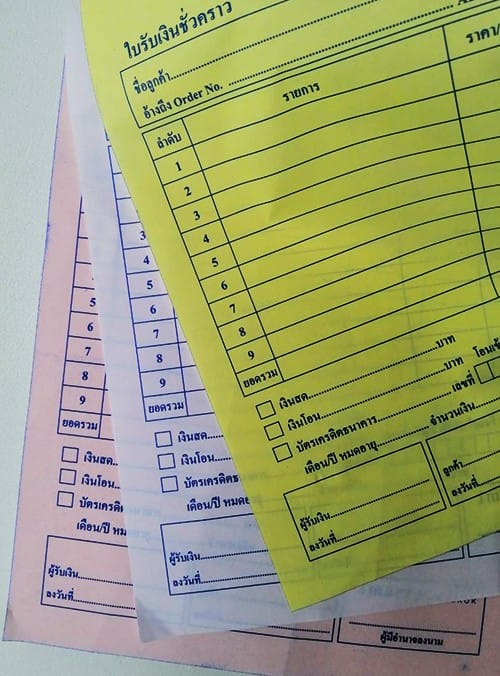 ใบรับเงินชั่วคราว
ชื่อลูกค้า
อ้างถึง Order No.
ลำดับ รายการ ราคา/
1
2
3
4
5
6
7
8
9
ยอดรวม
เงินสด บาท
เงินโอน บาท โอนเข้
บัตรเครดิตธนาคาร เลขที่
เดือน/ปี หมดอายุ จำนวนเงิน
ผู้รับเงิน
ลงวันที่
ลูกค้า
ลงวันที่
3
4
5
6
7
8
9
ยอดรวม
เงินสด
เงินโอน
บัตรเครดิตธน
เดือน/ปี หมดอ
ผู้รับเงิน
ลงวันที่
5
6
7
8
9
ยอดรวม
เงินสด
เงินโอน
บัตรเครดิต
เดือน/ปี หม
ผู้รับเงิน
ลงวันที่
ผู้มีอำนาจลงนาม